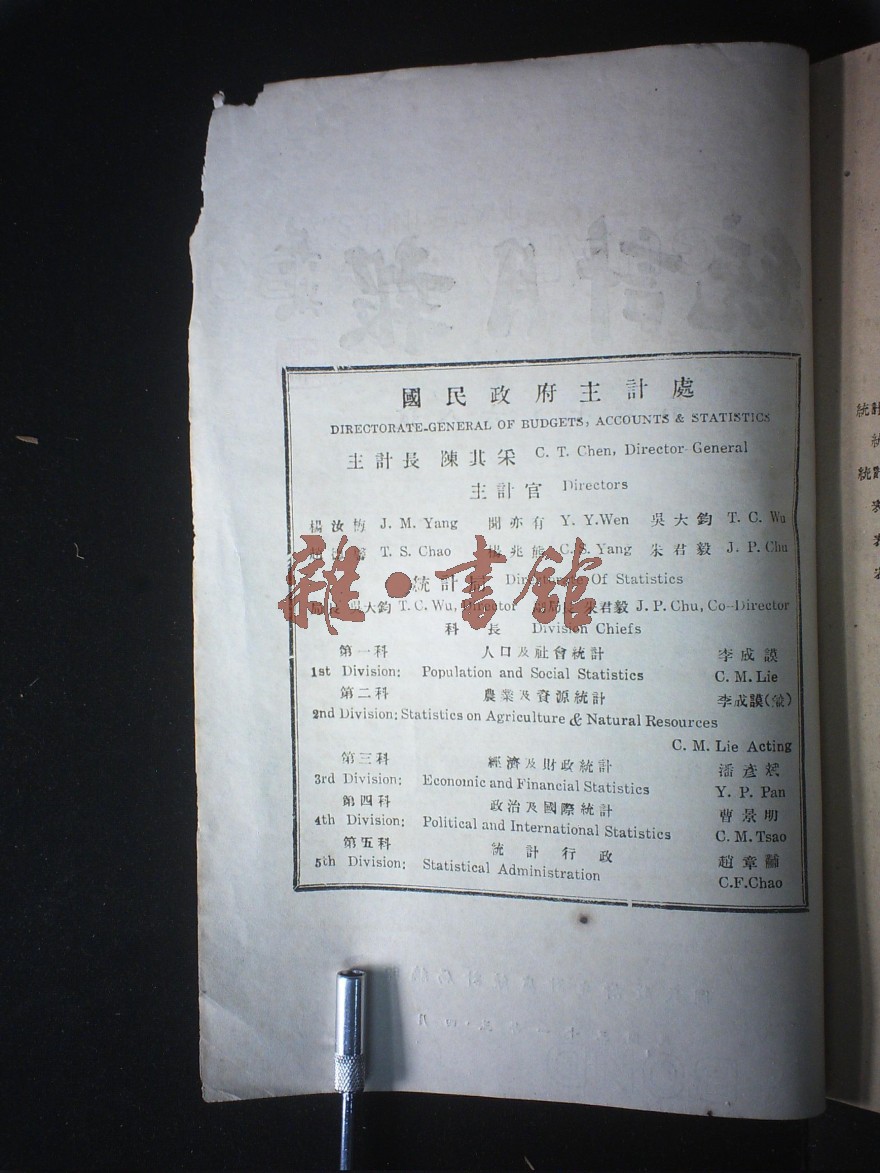 國民政府主計處
DIRECTORATE-GENERAL OF BUDGETS, ACCOUNTS & STATISTICS
主計長 陳其采 C. T. Chen, Director-General
主計官 Directors
楊汝梅 J. M. Yang 聞亦有 Y. Y. Wen 吳大鈞 T. C. Wu
T. S. Chao 楊兆熊 C. S. Yang 朱君毅 J. P. Chu
統計局 Directorate Of Statistics
局長 吳大鈞 T. C. Wu, Director 朱君毅 J. P. Chu, Co-Director
科長 Division Chiefs
第一科 人口及社會統計 李成謨
1st Division: Population and Social Statistics C. M. Lie
第二科 農業及資源統計 李成謨
2nd Division: Statistics on Agriculture & Natural Resources
C. M. Lie Acting
第三科 經濟及財政統計 潘彥斌
3rd Division: Economic and Financial Statistics Y. P. Pan
第四科 政治及國際統計 曹景明
4th Division: Political and International Statistics C. M. Tsao
第五科 統計行政 趙章黼
5th Division: Statistical Administration C.F.Chao
雜·書館